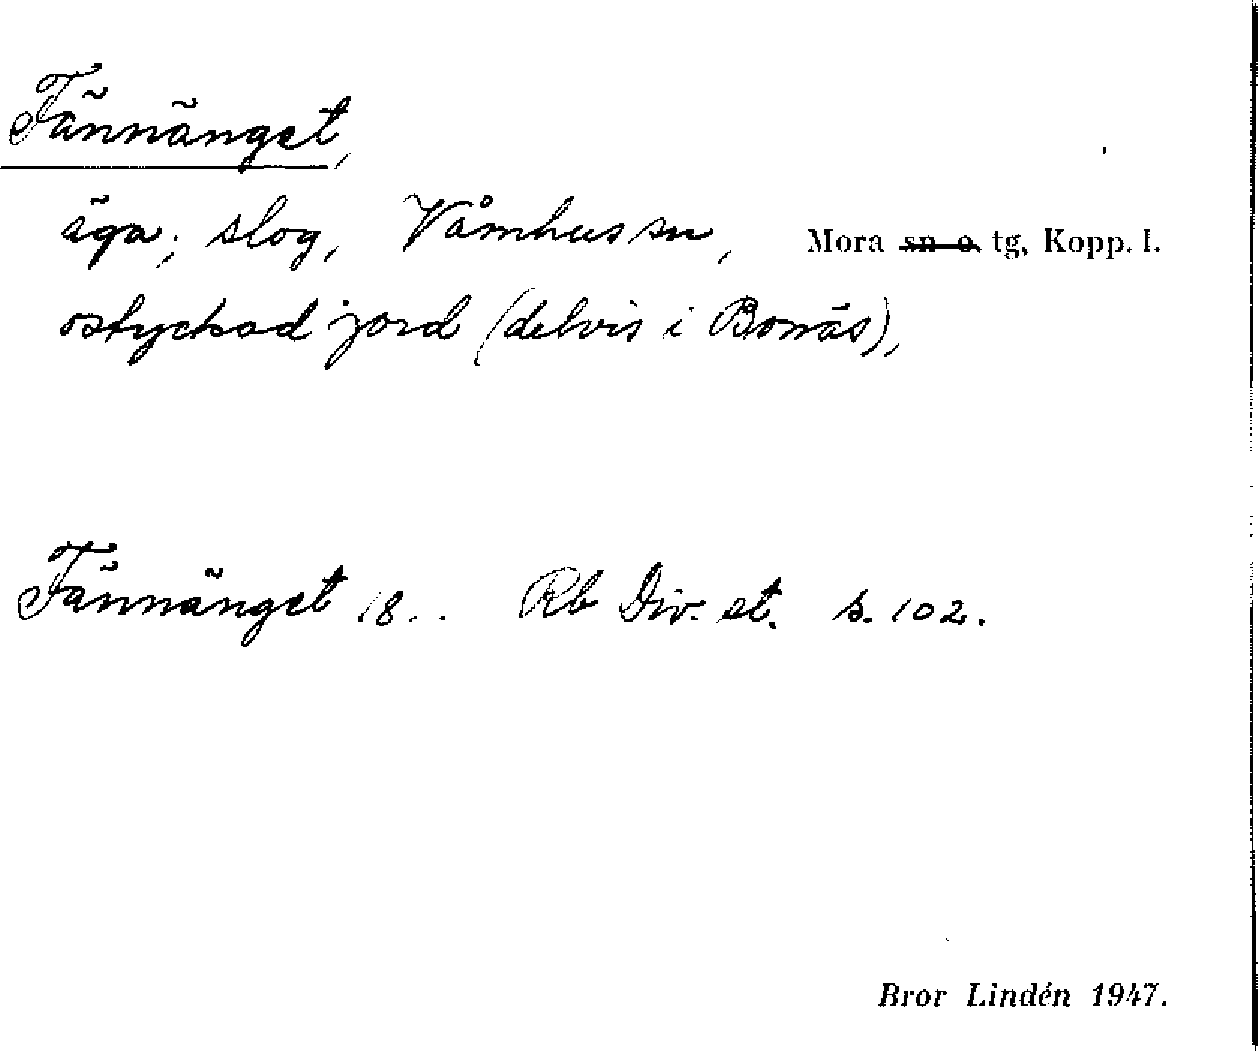 Fännänget,
äga; slog, Våmhus sn, Mora sn o. tg, Kopp. l.
ostyckad jord (delvis i Bonäs),
Fännänget 18.. Rb Div. et. s. 102.
Bror Lindén 1947.